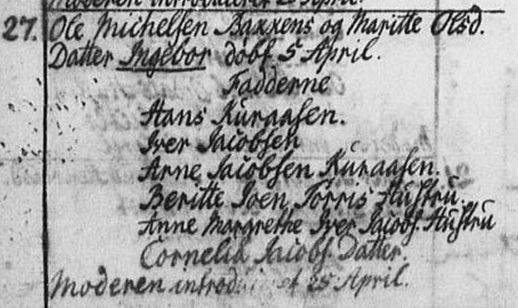 Moderen introduceret 25 April.
27. Ole Michelsen Baxxens og Maritte Olsd.
Datter Ingebor døbt 5 April.
Fadderne
Hans Kuraasen.
Iver Jacobsen
Arne Jacobsen Kuraasen.
Beritte Joen Torris Hustru.
Anne Margrethe Iver Jacobs. Hustru
Cornelia Jacobs Datter.
Moderen introduceret 25 April.